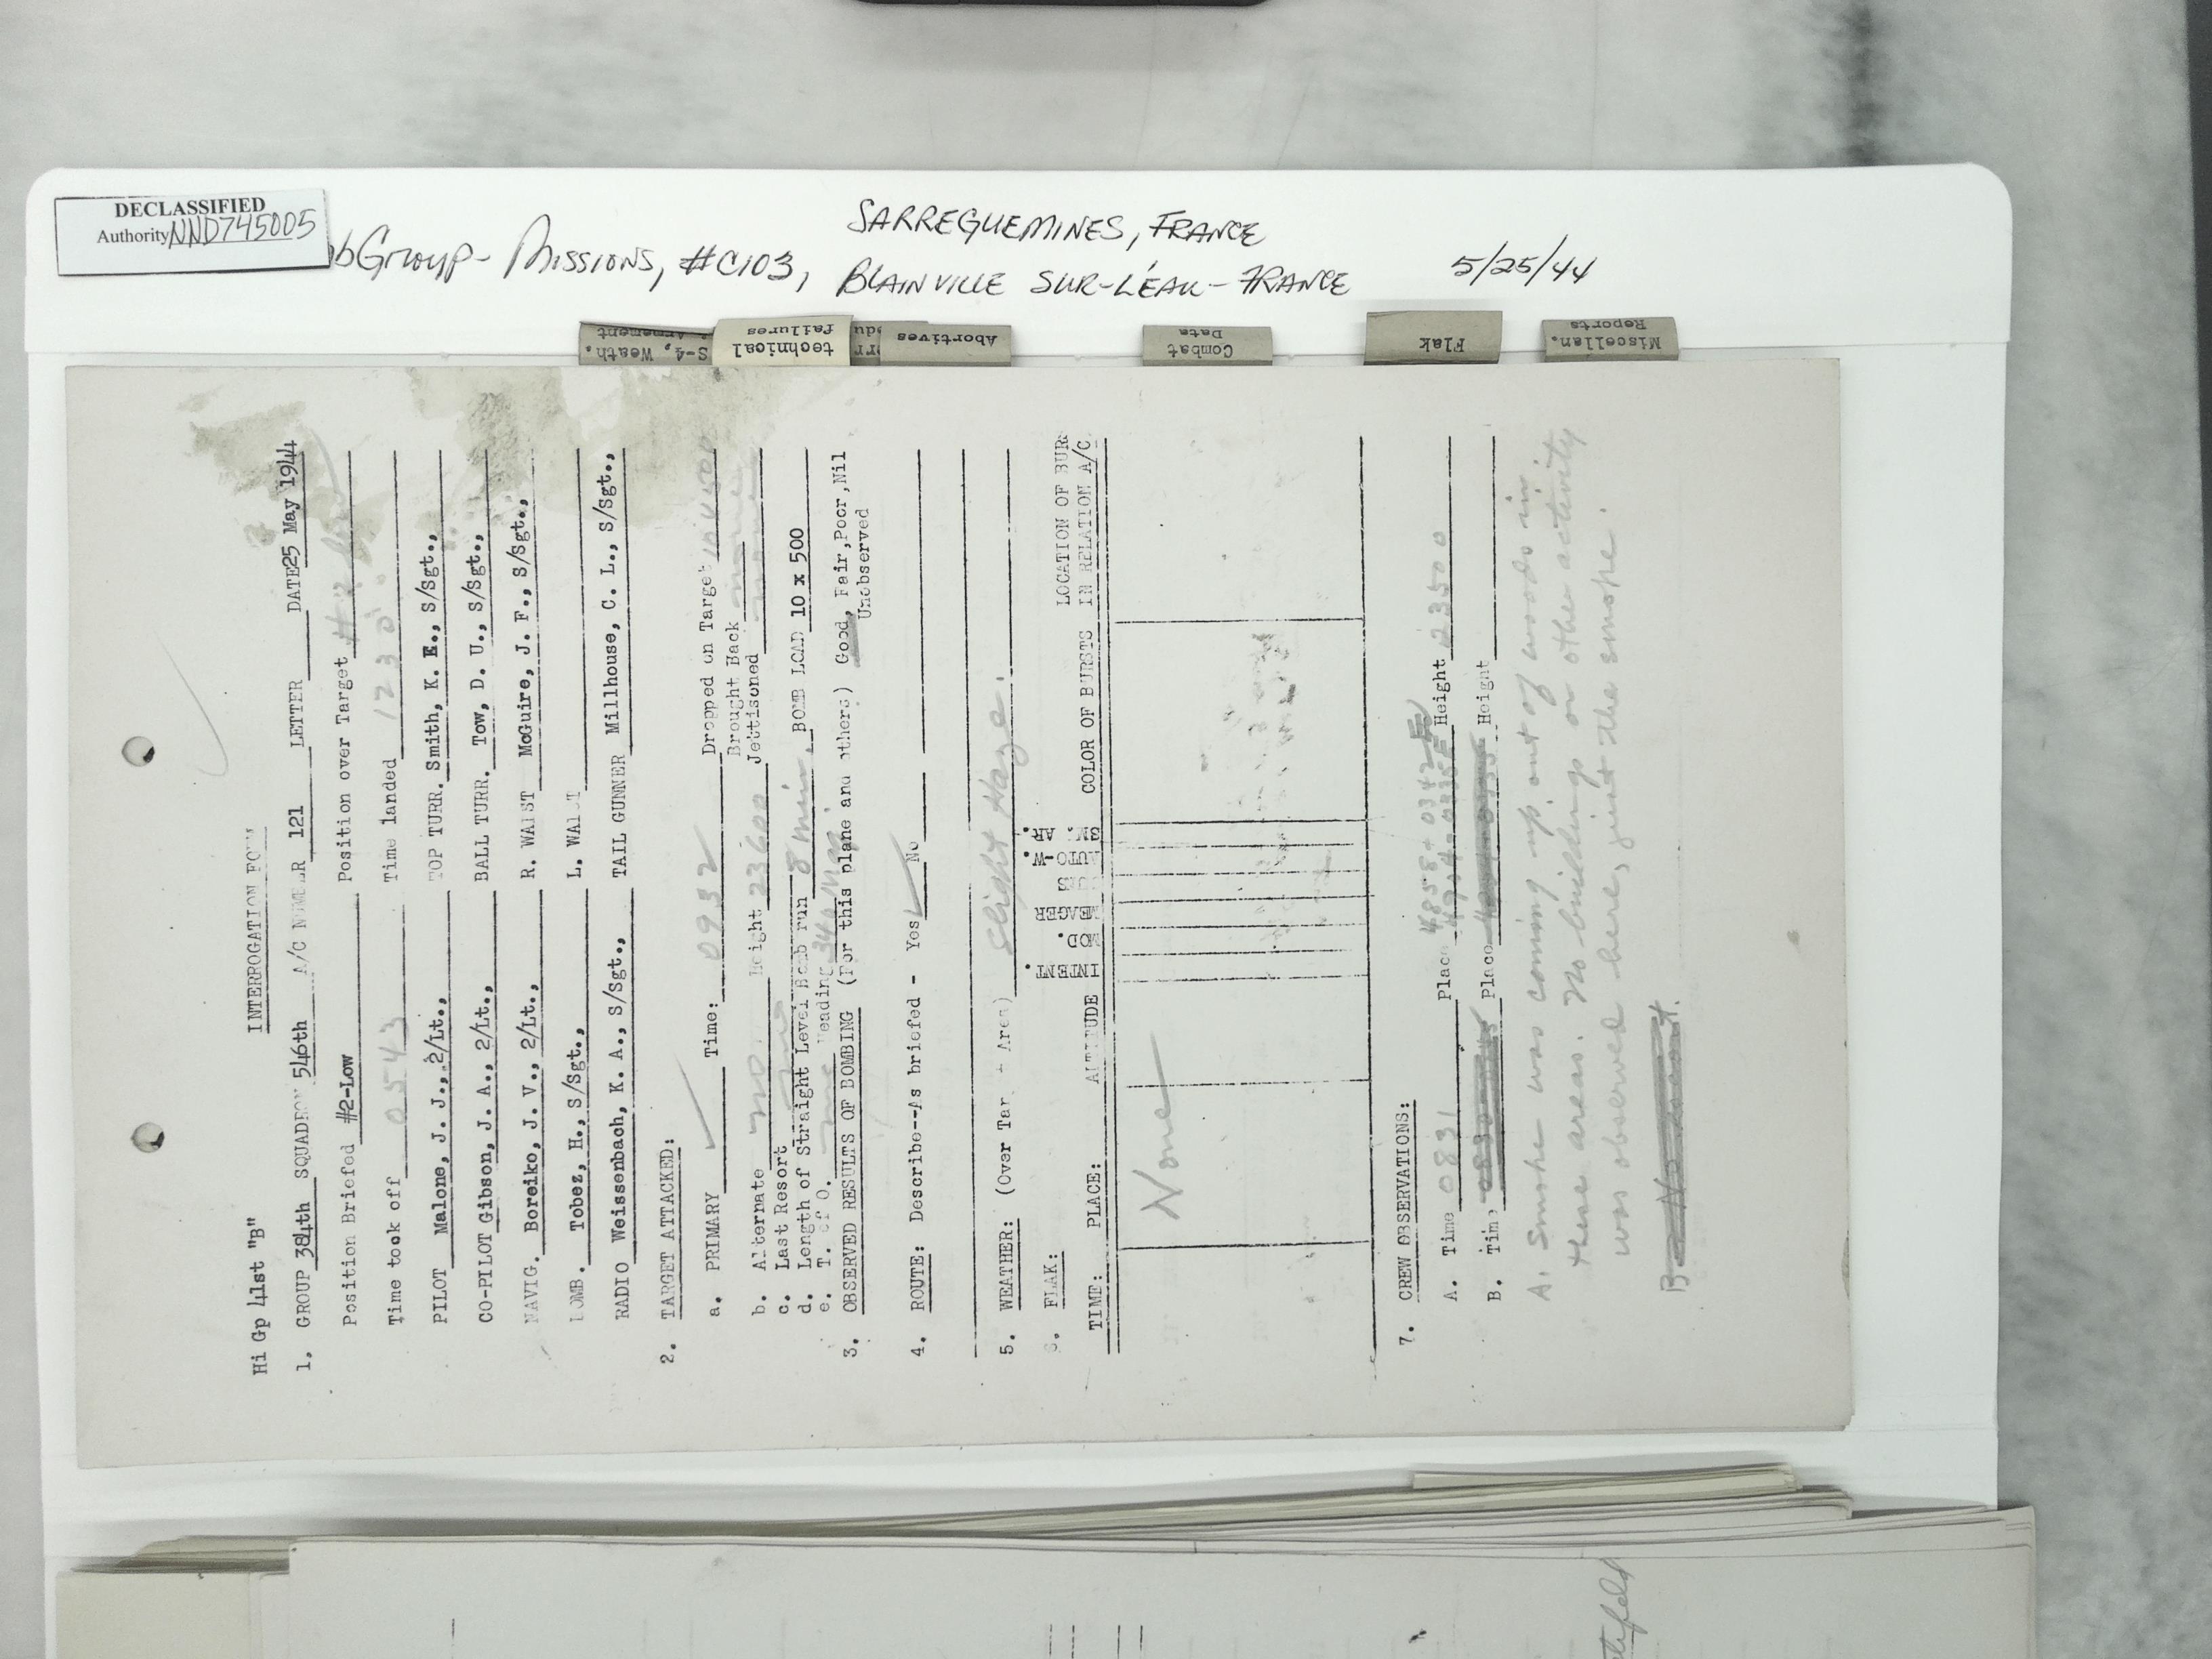 DECLASSIFIED
Authority NND745005
SARREGUEMINES, FRANCE
bGroup - Missions, #C103, BLAINVILLE SUR-L'EAU-FRANCE 5/25/44
S-4, Weath.
Armement
technical
failures
Abortives
Combat
Data
Flak
Miscellan.
Reports
INTERROGATION FORM
Hi Gp 41st "B"
1. GROUP 384th SQUADRON 546th A/C NUMBER 121 LETTER DATE 25 May 1944
Position Briefed #2-Low Position over Target #2
Time took off 0543 Time landed 1230
PILOT Malone, J. J., 2/Lt., TOP TURR. Smith, K. E., S/Sgt.,
CO-PILOT Gibson, J. A., 2/Lt., BALL TURR. Tow, D. U., S/Sgt.,
NAVIG. Boreiko, J. V., 2/Lt., R. WAIST McGuire, J. F., S/Sgt.,
BOMB. Tobez, H., S/Sgt., L. WAIST
RADIO Weissenbach, K. A., S/Sgt., TAIL GUNNER Millhouse, C. L., S/Sgt.,
2. TARGET ATTACKED:
a. PRIMARY ✓ Time: 0932 Dropped on Target 10 x 500
Brought Back none
b. Alternate no Height 23600 Jettisoned none
c. Last Resort
d. Length of Straight Level Bomb run 8 min. BOMB LOAD 10 x 500
e. T. of O. Heading 34
3. OBSERVED RESULTS OF BOMBING (For this plane and others) Good, Fair, Poor, Nil
Unobserved
4. ROUTE: Describe--As briefed - Yes ✓ No
5. WEATHER: (Over Tar - Area) Slight Haze.
6. FLAK:
TIME: PLACE: ALTITUDE INTENT. MOD. MEAGER AUTO-W. SM. AR. COLOR OF BURSTS LOCATION OF BURS IN RELATION A/C
None
7. CREW OBSERVATIONS:
A. Time 0831 Place 4858 - 0342 E Height 23500
B. Time Place Height
A. Smoke was coming up out of woods in
these areas. No buildings or other activity
was observed here, just the smoke.
B